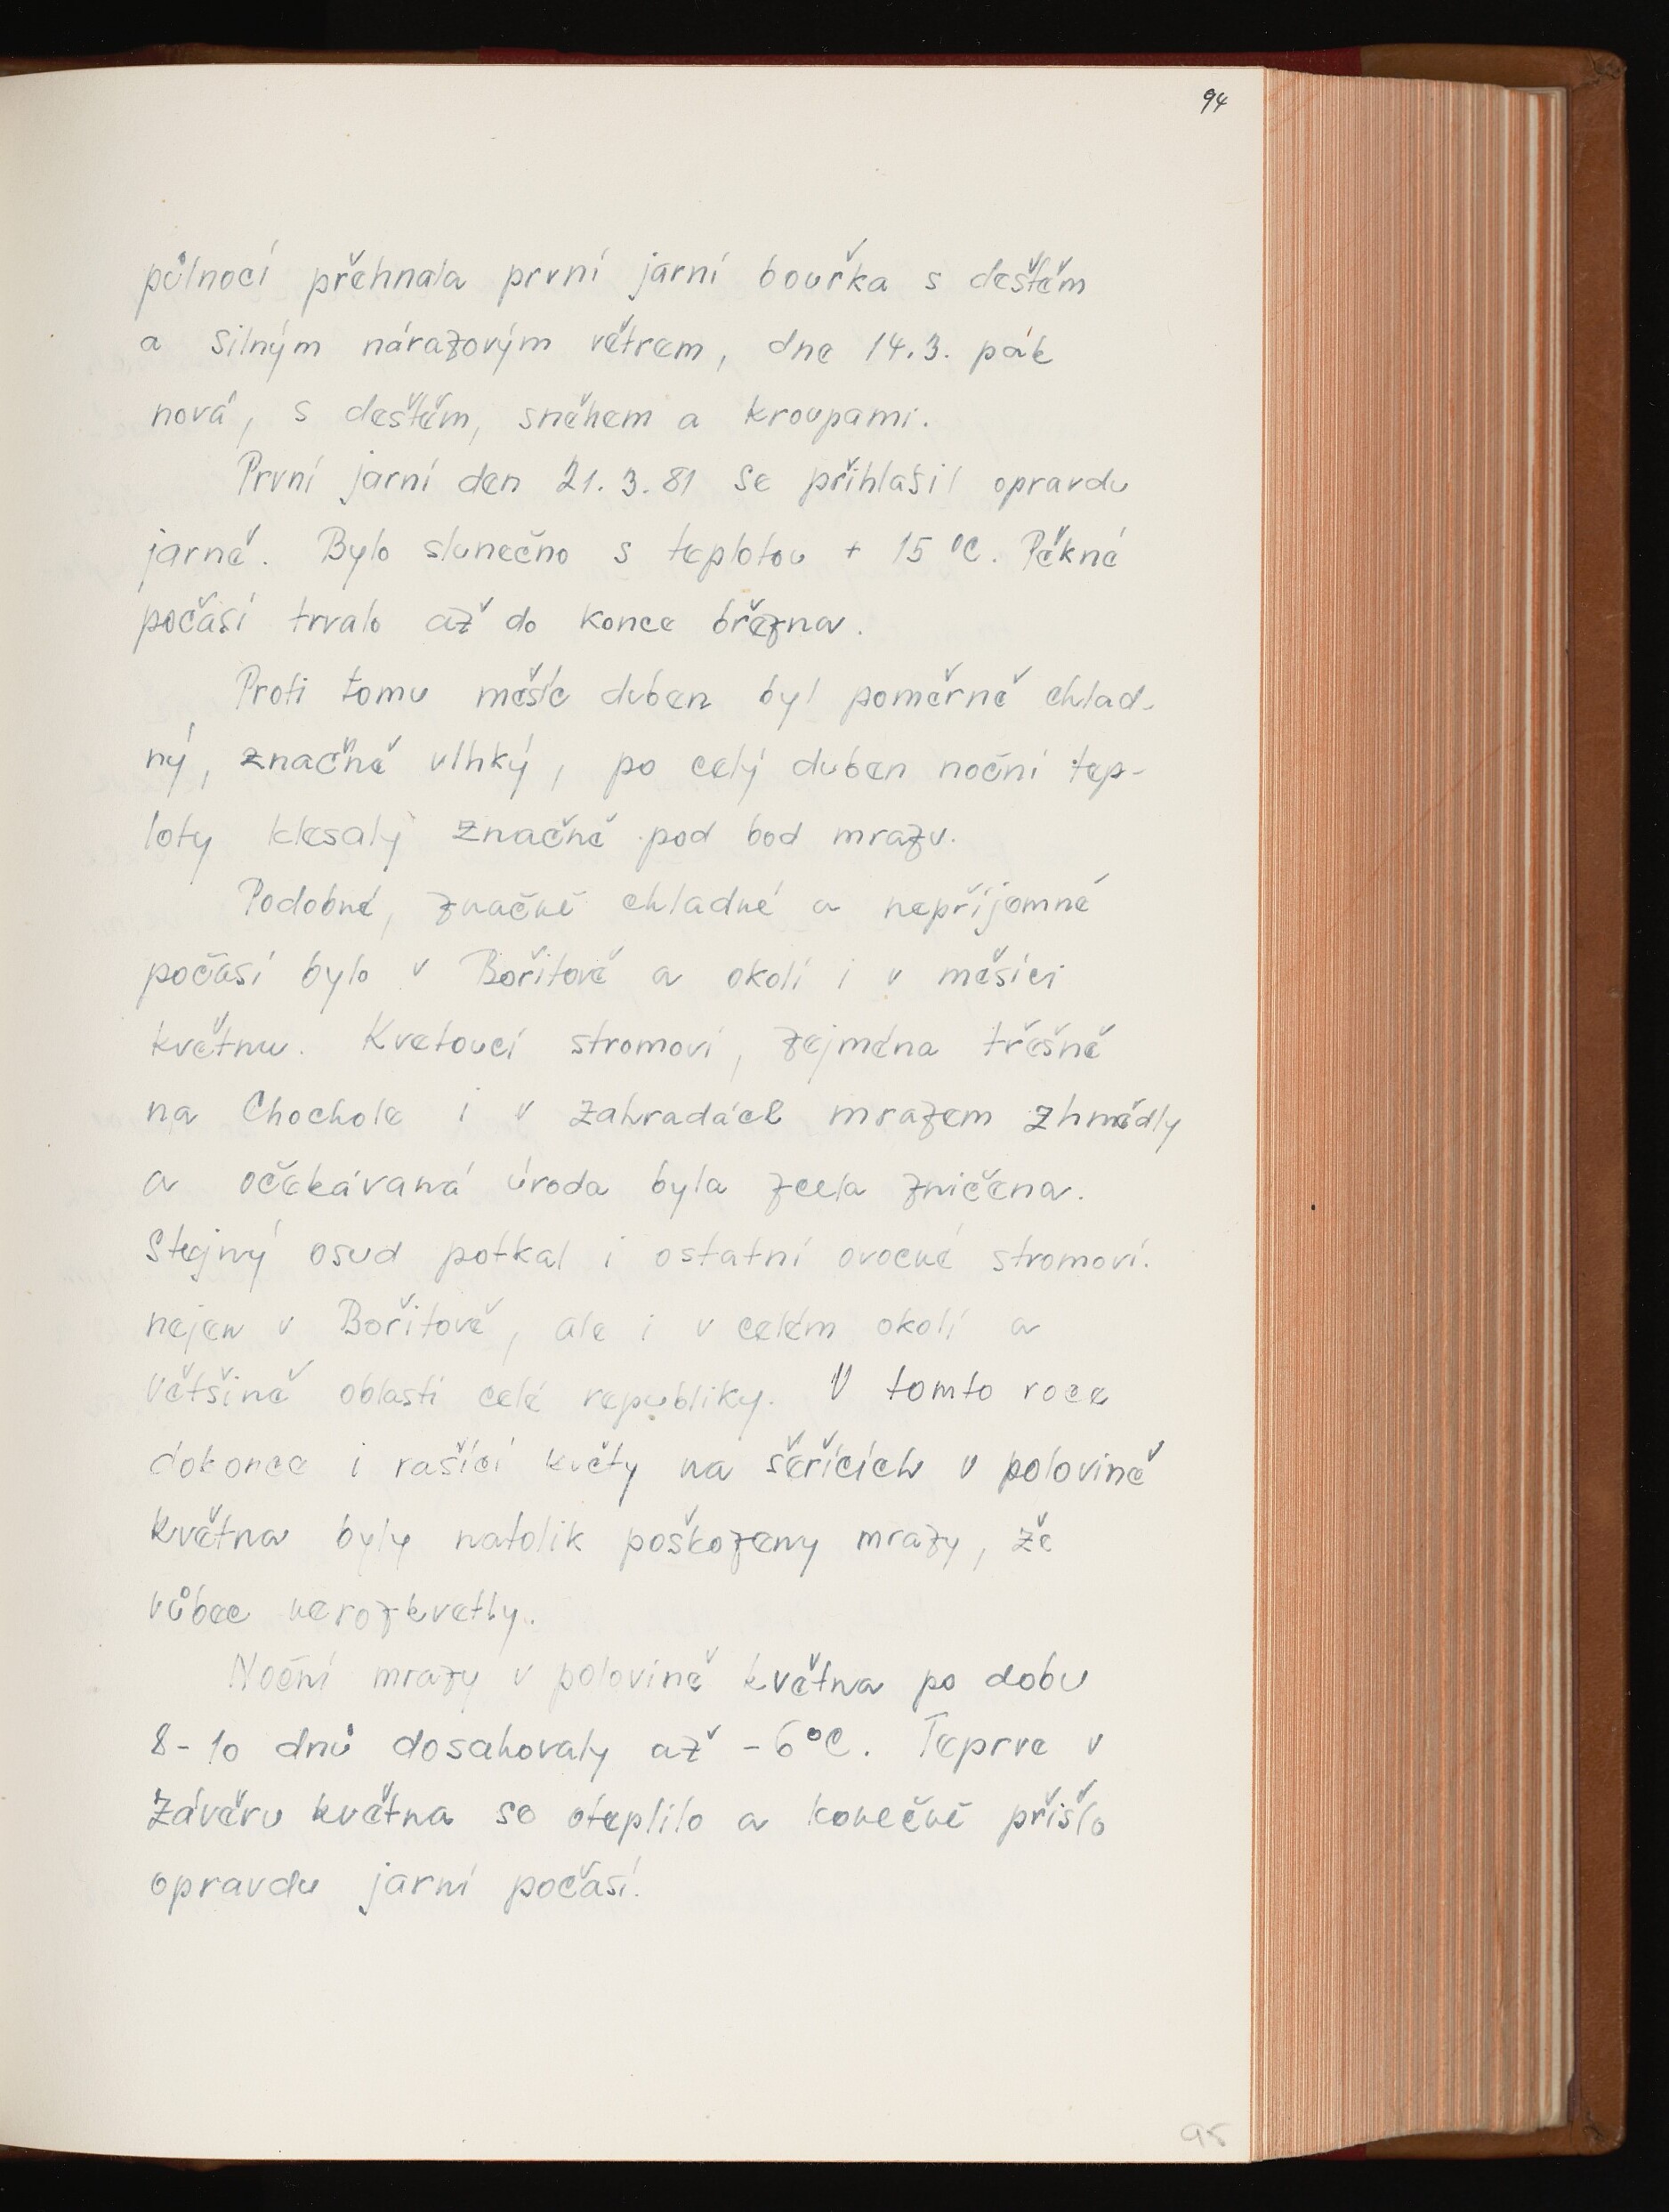 94
půlnocí přehnala první jarní bouřka s deštěm
a silným nárazovým větrem, dne 14.3. pák
nová, s deštěm, sněhem a kroupami.
První jarní den 21.3.81 se přihlásil opravdu
jarně. Bylo slunečno s teplotou + 15 °C. Pěkné
počasí trvalo až do konce března.
Proti tomu měsíc duben byl poměrně chlad-
ný, značně vlhký, po celý duben noční tep-
loty klesaly značně pod bod mrazu.
Podobné, značně chladné a nepříjemné
počasí bylo v Bořitově a okolí i v měsíci
květnu. Kvetoucí stromoví, zejména třešně
na Chocholе i v zahradách mrazem zhnědly
a očekávaná úroda byla zcela zničena.
Stejný osud potkal i ostatní ovocné stromoví.
nejen v Bořitově, ale i v celém okolí a
většině oblasti celé republiky. V tomto roce
dokonce i rašící květy na šeřících v polovině
května byly natolik poškozeny mrazy, že
vůbec nerozkvetly.
Noční mrazy v polovině května po dobu
8-10 dnů dosahovaly až -6°C. Teprve v
závěru května se oteplilo a konečně přišlo
opravdu jarní počasí.
95